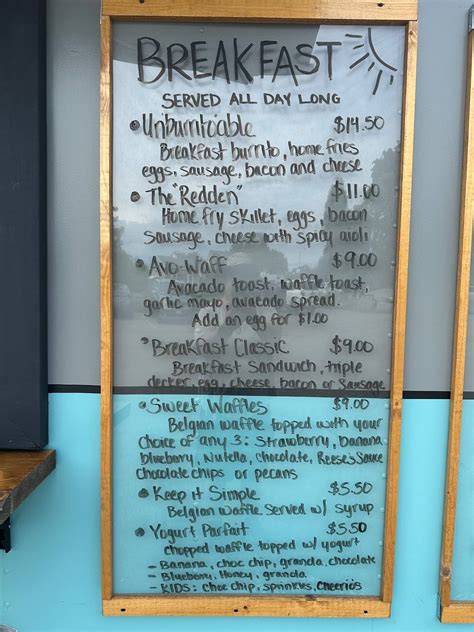 BREAKFAST
SERVED ALL DAY LONG
• Unburritoable $14.50
Breakfast burrito, home fries
eggs, sausage, bacon and cheese
• The "Redden" $11.00
Home fry skillet, eggs, bacon
sausage, cheese with spicy aioli
• Avo-Waff $9.00
Avacado toast, waffle toast,
garlic mayo, avacado spread.
Add an egg for $1.00
• Breakfast Classic $9.00
Breakfast Sandwich, triple
decker, egg, cheese, bacon or Sausage
• Sweet Waffles $9.00
Belgian waffle topped with your
choice of any 3: Strawberry, banana
blueberry, Nutella, chocolate, Reese's Sauce
Chocolate chips or pecans
• Keep it Simple $5.50
Belgian waffle Served w/ syrup
• Yogurt Parfait $5.50
chopped waffle topped w/ yogurt
- Banana, choc chip, granola, chocolate
- Blueberry, Honey, granola
- KIDS: choc chip, sprinkles, Cheerios